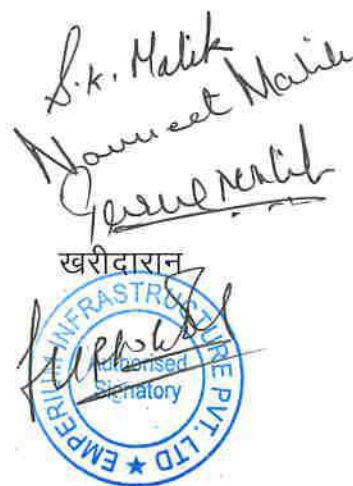 S.K. Malik
Navneet Malik
Malik
खरीदारान
EMPERIUM INFRASTRUCTURE PVT. LTD ★
Authorised
Signatory